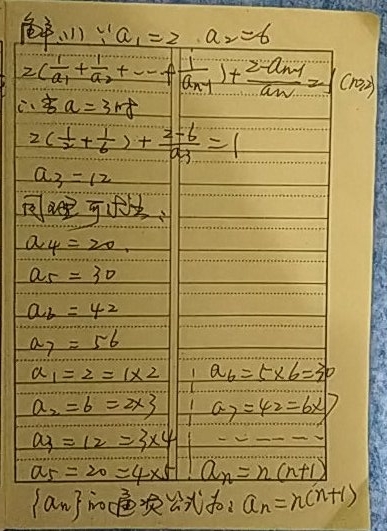 解: (1) ∵a₁=2 a₂=6
2(1/a₁+1/a₂+……+1/aₙ₋₁)+(2-aₙ₋₁)/aₙ=1 (n≥2)
∴当a=3时
2(1/2+1/6)+(2-6)/a₃=1
a₃=12
同理可求出:
a₄=20.
a₅=30
a₆=42
a₇=56
a₁=2=1×2
a₂=6=2×3
a₃=12=3×4
a₅=20=4×5
a₆=5×6=30
a₇=42=6×7
------
aₙ=n(n+1)
{aₙ}的通项公式为: aₙ=n(n+1)